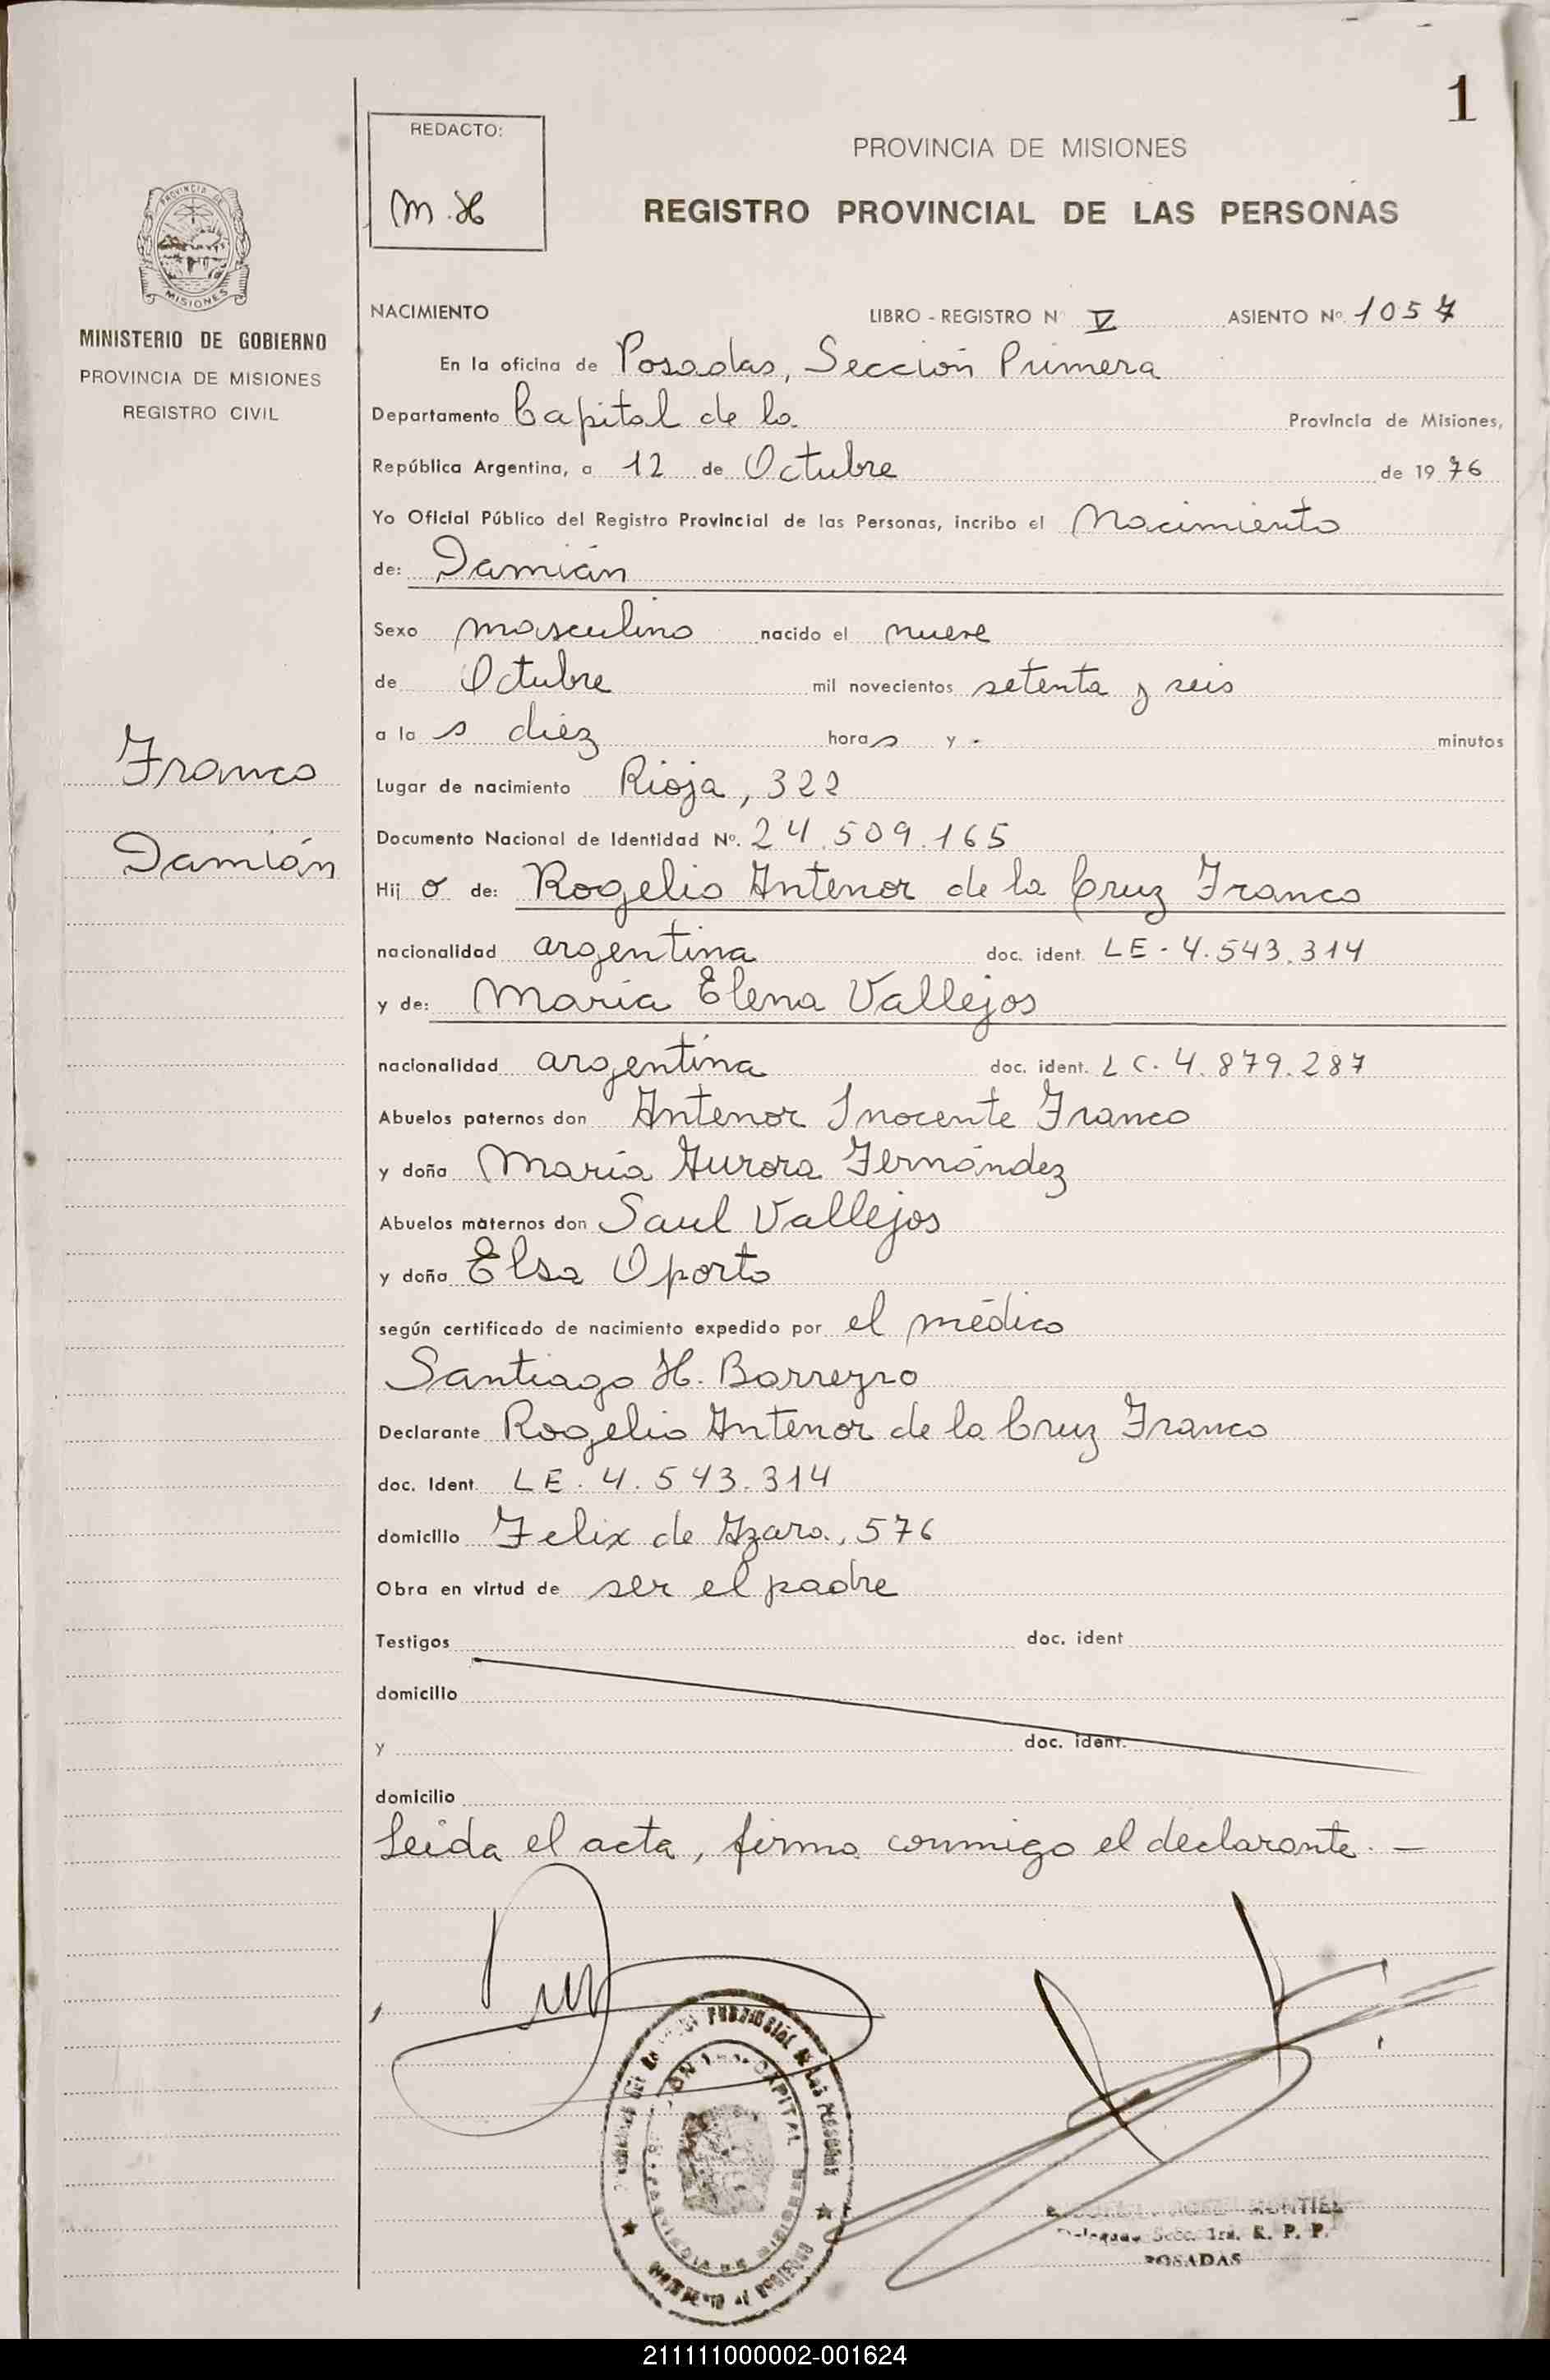 1
REDACTO:
M.H
PROVINCIA DE MISIONES
REGISTRO PROVINCIAL DE LAS PERSONAS
PROVINCIA DE
MISIONES
MINISTERIO DE GOBIERNO
PROVINCIA DE MISIONES
REGISTRO CIVIL
NACIMIENTO LIBRO - REGISTRO Nº V ASIENTO Nº. 1057
En la oficina de Posadas, Sección Primera
Departamento Capital de la Provincia de Misiones,
República Argentina, a 12 de Octubre de 1976
Yo Oficial Público del Registro Provincial de las Personas, incribo el Nacimiento
de: Damián
Sexo masculino nacido el nueve
de Octubre mil novecientos setenta y seis
a las diez horas y - minutos
Franco
Damián
Lugar de nacimiento Rioja, 322
Documento Nacional de Identidad Nº. 24.509.165
Hijo de: Rogelio Antenor de la Cruz Franco
nacionalidad argentina doc. ident. LE - 4.543.314
y de: María Elena Vallejos
nacionalidad argentina doc. ident. LC. 4.879.287
Abuelos paternos don Antenor Inocente Franco
y doña María Aurora Fernández
Abuelos maternos don Saul Vallejos
y doña Elsa Oporto
según certificado de nacimiento expedido por el médico
Santiago H. Barreyro
Declarante Rogelio Antenor de la Cruz Franco
doc. Ident. LE. 4.543.314
domicilio Felix de Azara, 576
Obra en virtud de ser el padre
Testigos doc. ident
domicilio
y doc. ident.
domicilio
Leída el acta, firma conmigo el declarante. —
CAPITAL
MONTIEL
Secc. 1ra. R. P. P.
POSADAS
211111000002-001624